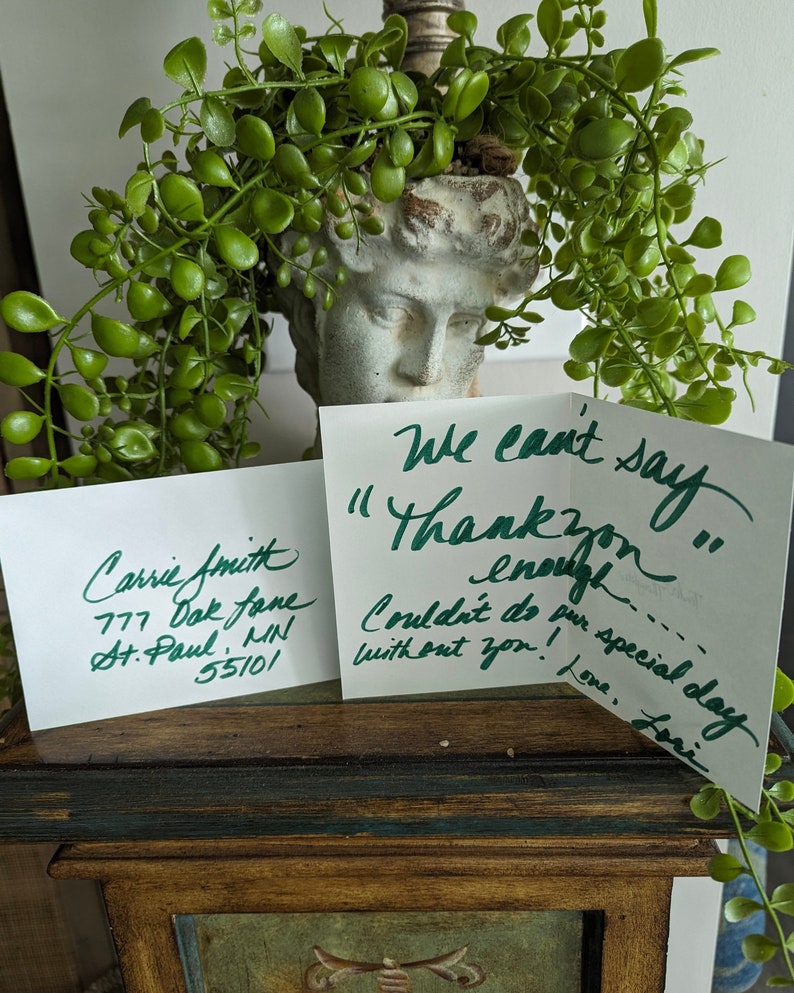 Carrie Smith
777 Oak Lane
St. Paul, MN
55101
We can't say
"Thank you"
enough.....
Couldn't do our special day
without you!
Love, Lori